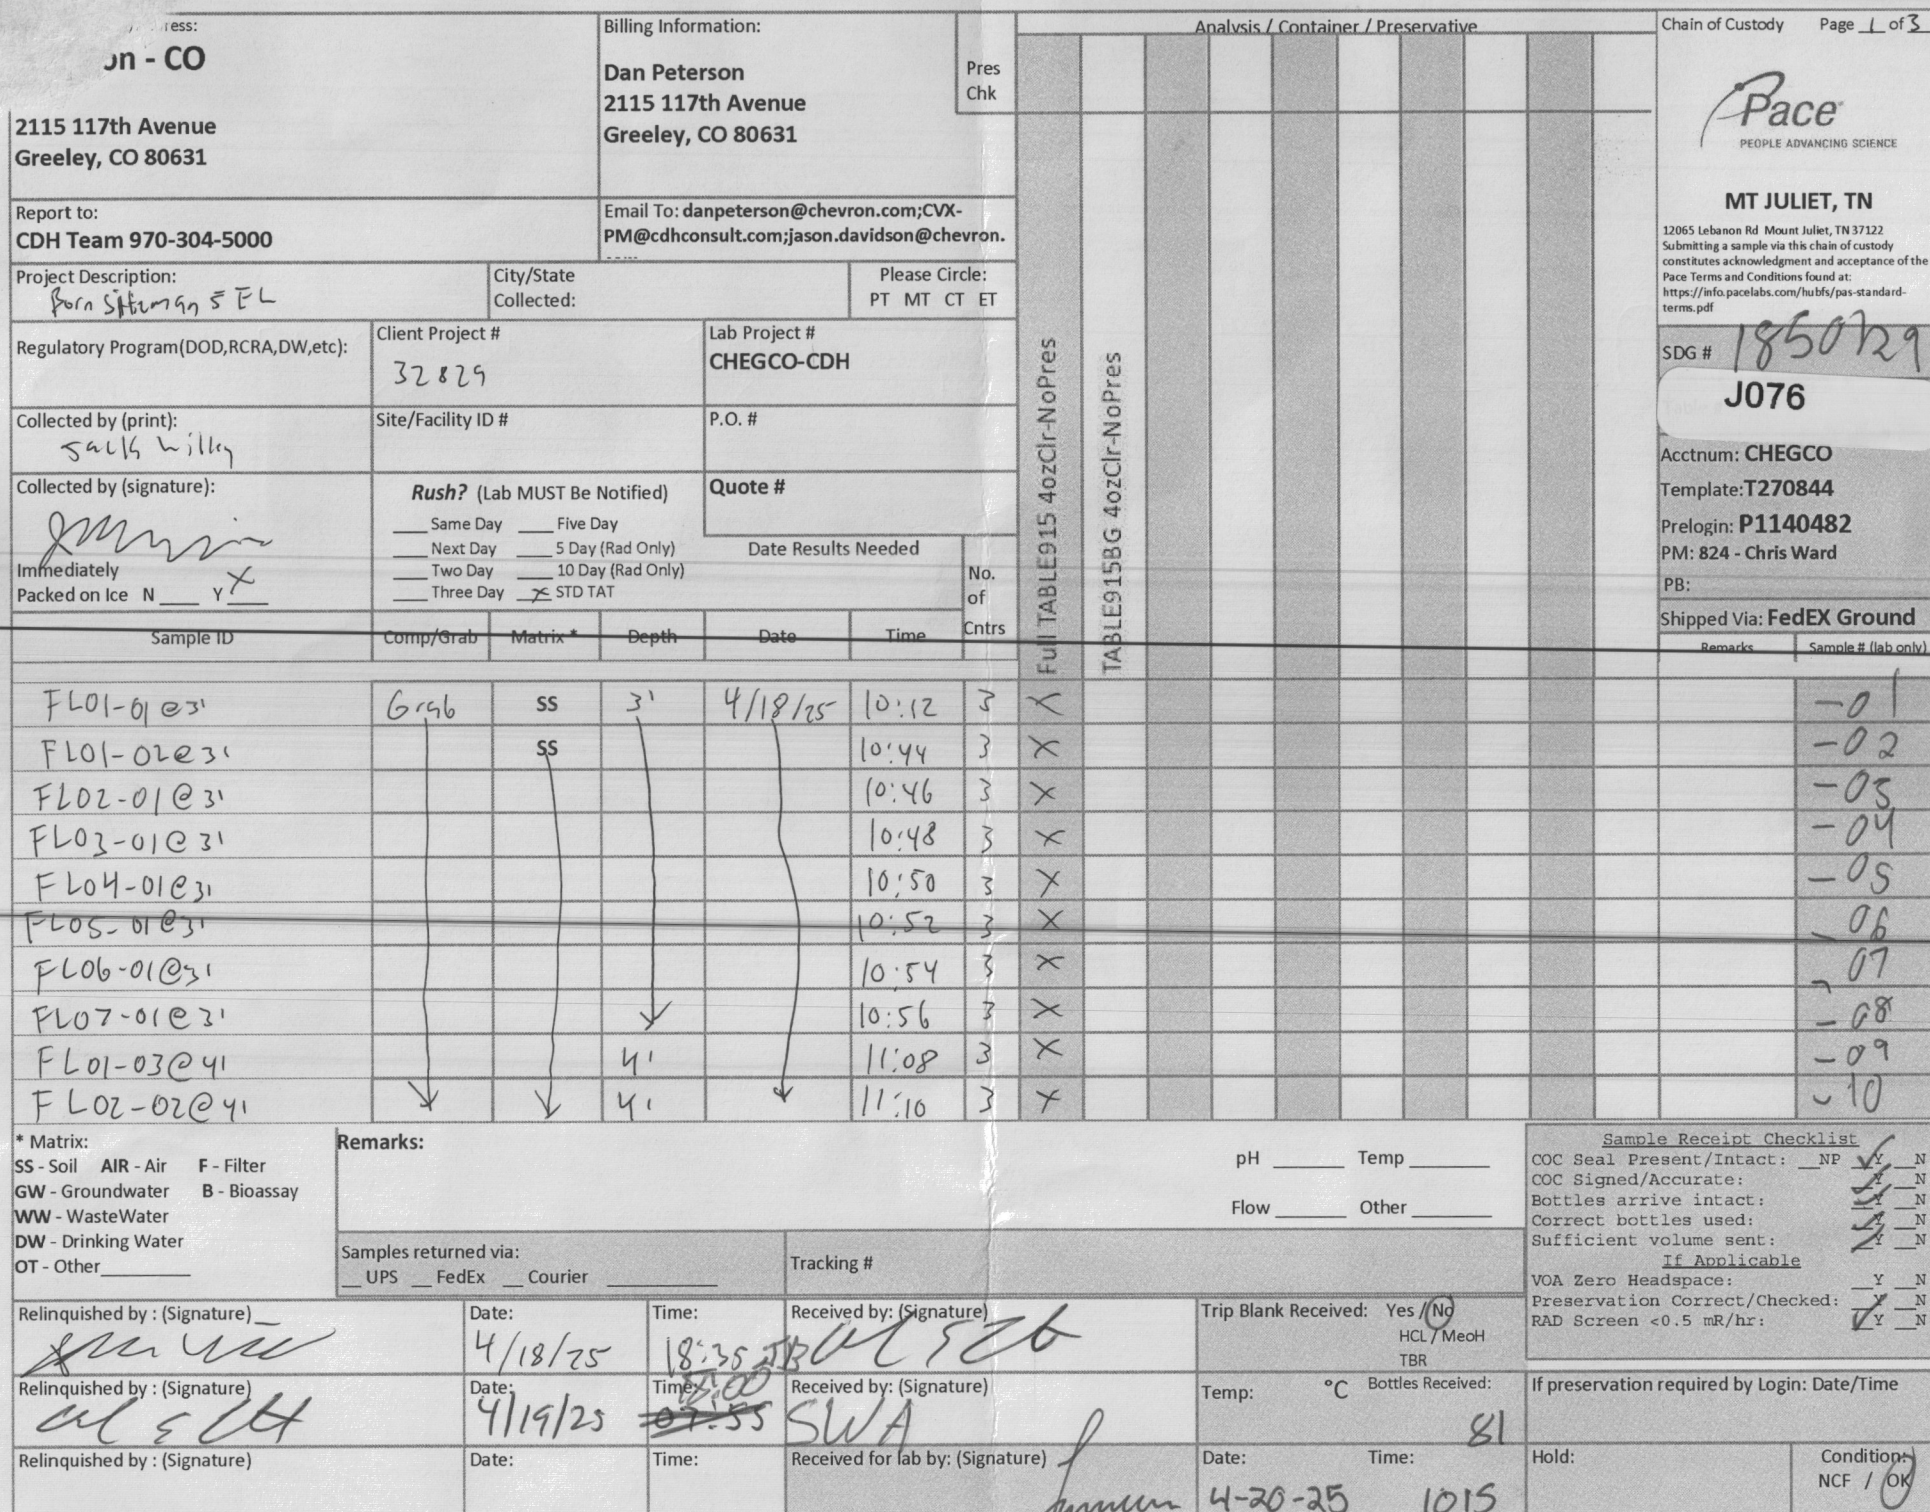 ress:
on - CO
2115 117th Avenue
Greeley, CO 80631
Billing Information:
Dan Peterson
2115 117th Avenue
Greeley, CO 80631
Pres
Chk
Analysis / Container / Preservative
Chain of Custody Page 1 of 3
Pace
PEOPLE ADVANCING SCIENCE
MT JULIET, TN
12065 Lebanon Rd Mount Juliet, TN 37122
Submitting a sample via this chain of custody
constitutes acknowledgment and acceptance of the
Pace Terms and Conditions found at:
https://info.pacelabs.com/hubfs/pas-standard-
terms.pdf
Report to:
CDH Team 970-304-5000
Email To: danpeterson@chevron.com;CVX-
PM@cdhconsult.com;jason.davidson@chevron.
Project Description:
5 FL
City/State
Collected:
Please Circle:
PT MT CT ET
Regulatory Program(DOD,RCRA,DW,etc):
Client Project #
32829
Lab Project #
CHEGCO-CDH
Collected by (print):
Site/Facility ID #
P.O. #
Collected by (signature):
Immediately
Packed on Ice N ___ Y X
Rush? (Lab MUST Be Notified)
___ Same Day ___ Five Day
___ Next Day ___ 5 Day (Rad Only)
___ Two Day ___ 10 Day (Rad Only)
___ Three Day X STD TAT
Quote #
Date Results Needed
No.
of
Cntrs
Full TABLE915 4ozClr-NoPres
TABLE915BG 4ozClr-NoPres
SDG # 1850729
J076
Acctnum: CHEGCO
Template:T270844
Prelogin: P1140482
PM: 824 - Chris Ward
PB:
Shipped Via: FedEX Ground
Sample ID Comp/Grab Matrix * Depth Date Time Remarks Sample # (lab only)
FL01-01@3' Grab SS 3' 4/18/25 10:12 3 X -01
FL01-02@3' SS 10:44 3 X -02
FL02-01@3' 10:46 3 X -03
FL03-01@3' 10:48 3 X -04
FL04-01@3' 10:50 3 X -05
FL05-01@3' 10:52 3 X -06
FL06-01@3' 10:54 3 X -07
FL07-01@3' 10:56 3 X -08
FL01-03@4' 4' 11:08 3 X -09
FL02-02@4' 4' 11:10 3 X -10
* Matrix:
SS - Soil AIR - Air F - Filter
GW - Groundwater B - Bioassay
WW - WasteWater
DW - Drinking Water
OT - Other
Remarks:
pH ___ Temp ___
Flow ___ Other ___
Samples returned via:
__ UPS __ FedEx __ Courier
Tracking #
Sample Receipt Checklist
COC Seal Present/Intact: __NP ✓Y __N
COC Signed/Accurate: ✓Y __N
Bottles arrive intact: ✓Y __N
Correct bottles used: ✓Y __N
Sufficient volume sent: ✓Y __N
If Applicable
VOA Zero Headspace: __Y __N
Preservation Correct/Checked: __Y __N
RAD Screen <0.5 mR/hr: ✓Y __N
Relinquished by : (Signature)
Date:
4/18/25
Time:
18:35
Received by: (Signature)
Trip Blank Received: Yes / No
HCL / MeoH
TBR
Relinquished by : (Signature)
Date:
4/19/25
Time:
07:55
Received by: (Signature)
SWA
Temp: °C Bottles Received:
81
If preservation required by Login: Date/Time
Relinquished by : (Signature)
Date:
Time:
Received for lab by: (Signature)
Date:
4-20-25
Time:
1015
Hold:
Condition:
NCF / OK